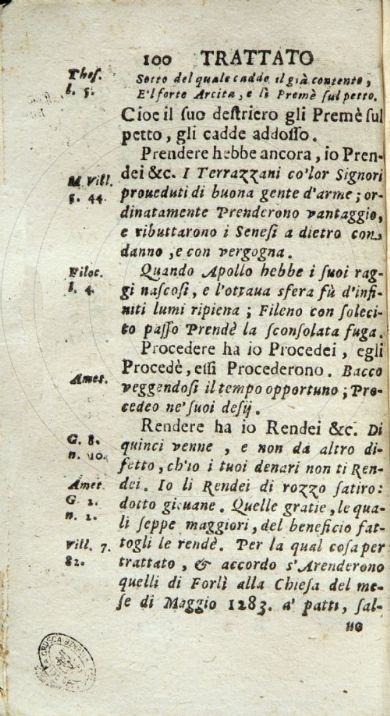 100 TRATTATO
Thes. Sotto del quale cadde il già contento,
l. 5. E'l forte Arcita, e li Premè sul petto.
Cioe il suo destriero gli Premè sul
petto, gli cadde addosso.
Prendere hebbe ancora, io Pren-
dei &c. I Terrazzani co'lor Signori
M. Vill. proueduti di buona gente d'arme; or-
5. 44. dinatamente Prenderono vantaggio,
e ributtarono i Senesi a dietro con
danno, e con vergogna.
Filoc. Quando Apollo hebbe i suoi rag-
l. 4. gi nascosi, e l'ottaua sfera fù d'infi-
niti lumi ripiena; Fileno con soleci-
to passo Prendè la sconsolata fuga.
Procedere ha io Procedei, egli
Procedè, essi Procederono. Bacco
Amet. veggendosi il tempo opportuno; Pro-
cedeo ne'suoi desij.
Rendere ha io Rendei &c. Di
G. 8. quinci venne, e non da altro di-
n. 10. fetto, ch'io i tuoi denari non ti Ren-
Amet. dei. Io li Rendei di rozzo satiro:
G 2. dotto giouane. Quelle gratie, le qua-
n. 2. li seppe maggiori, del beneficio fat-
Vill. 7. togli le rendè. Per la qual cosa per
82. trattato, & accordo s'Arenderono
quelli di Forlì alla Chiesa del me-
se di Maggio 1283. a' patti, sal-
no